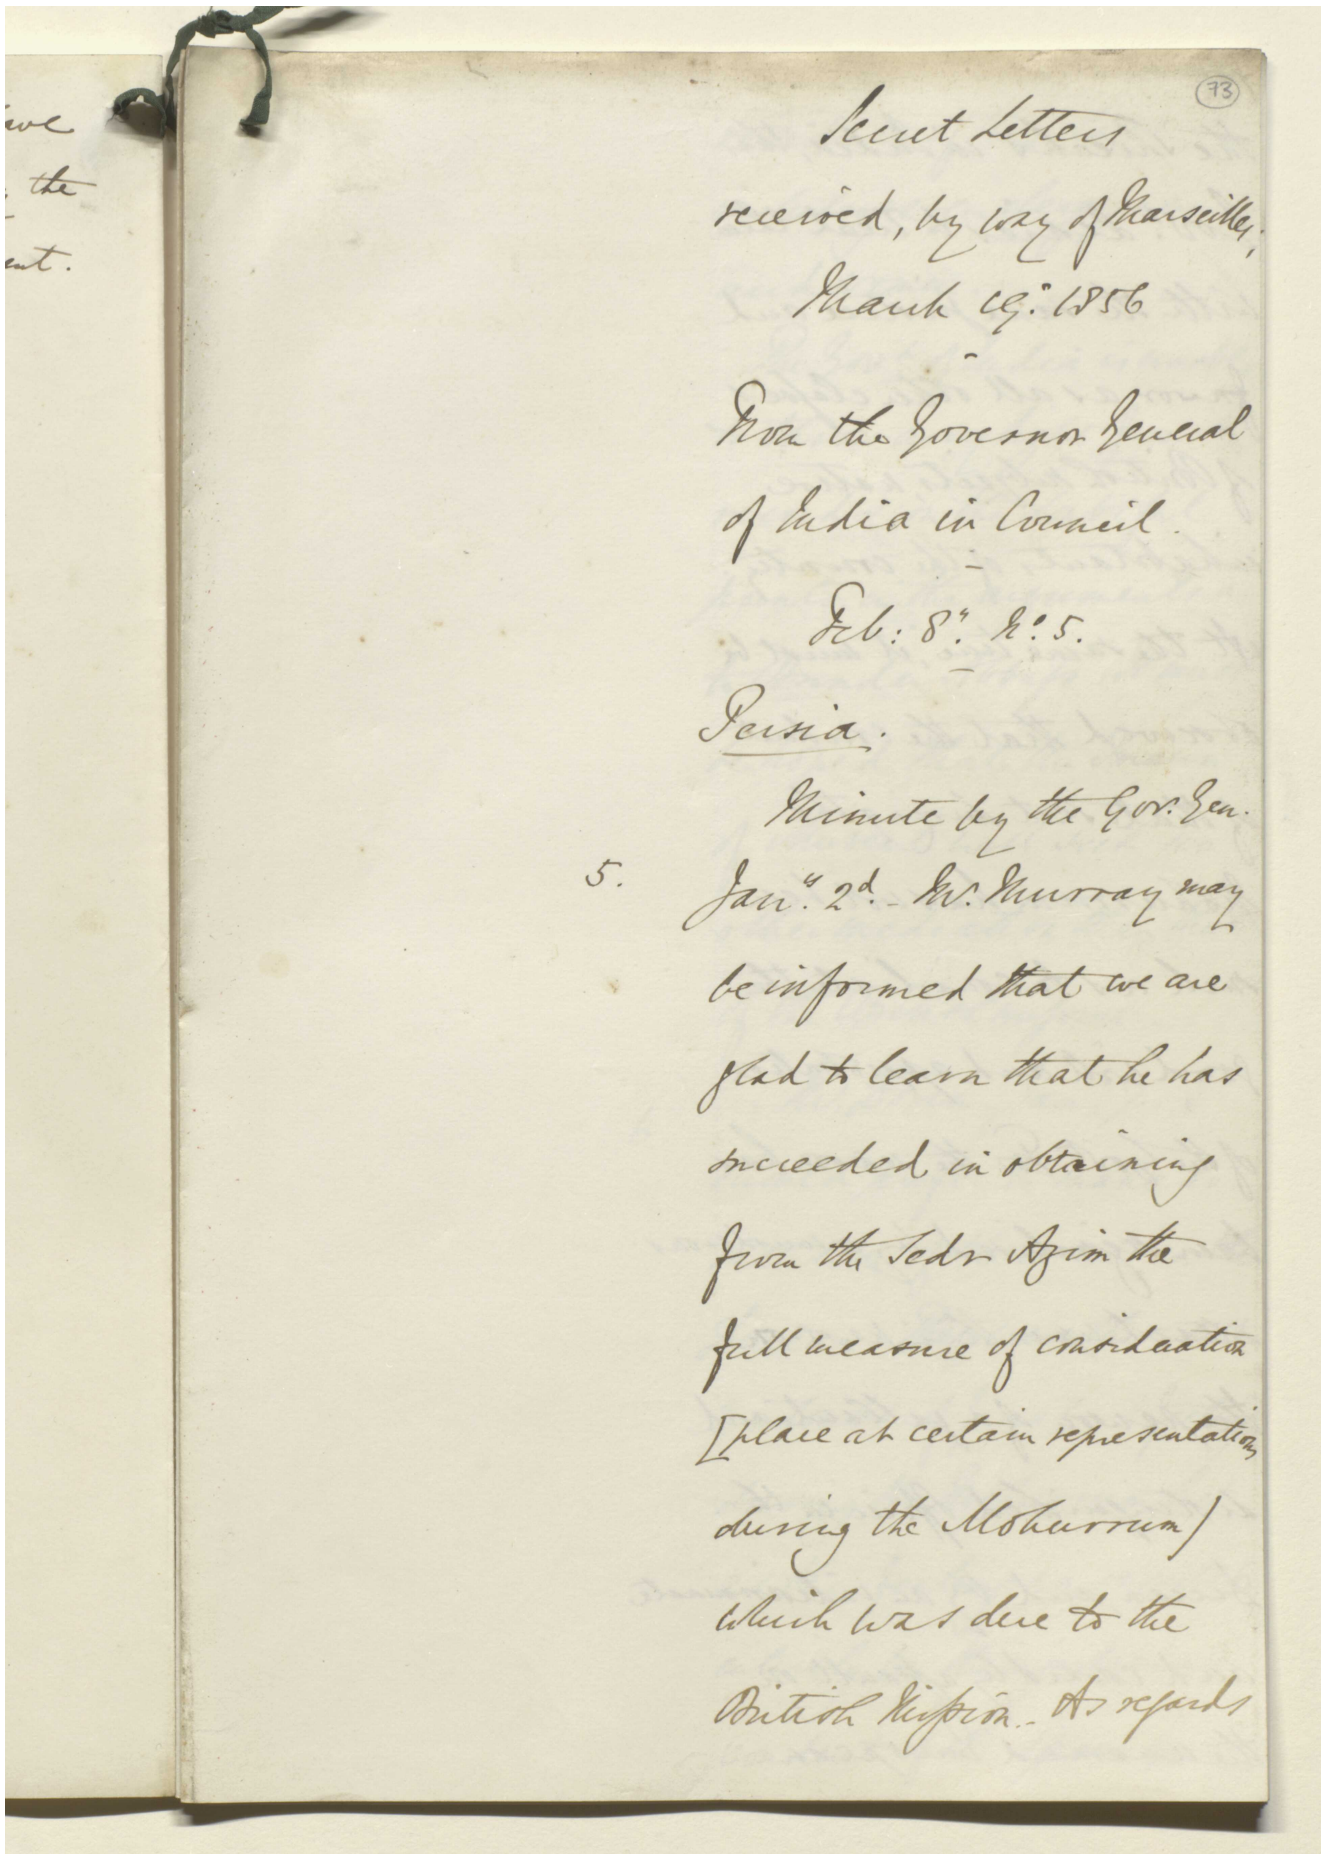 ave
the
ent.
73
Secret Letters
received, by way of Marseilles,
March 19: 1856
From the Governor General
of India in Council.
Feb: 8". No. 5.
Persia.
Minute by the Gov. Gen.
5.
Jany. 2d. - Mr. Murray may
be informed that we are
glad to learn that he has
succeeded in obtaining
from the Sedr Azim the
full measure of consideration
[place at certain representations
during the Mohurrum]
which was due to the
British Mission. - As regards